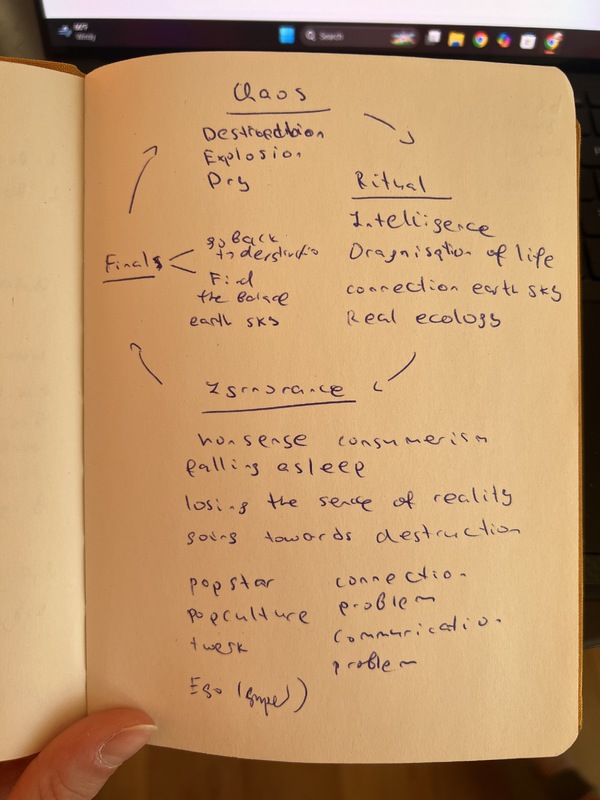 Windy
Search
Chaos
Explosion
Dry
Ritual
Intelligence
Oragnisation of life
connection earth sky
Real ecology
Finals
go back
to
Find
the balace
earth sky
Ignorance
nonsense consumerism
falling asleep
losing the sense of reality
going towards destruction
popstar
popculture
twerk
Ego
connection
problem
communication
problem